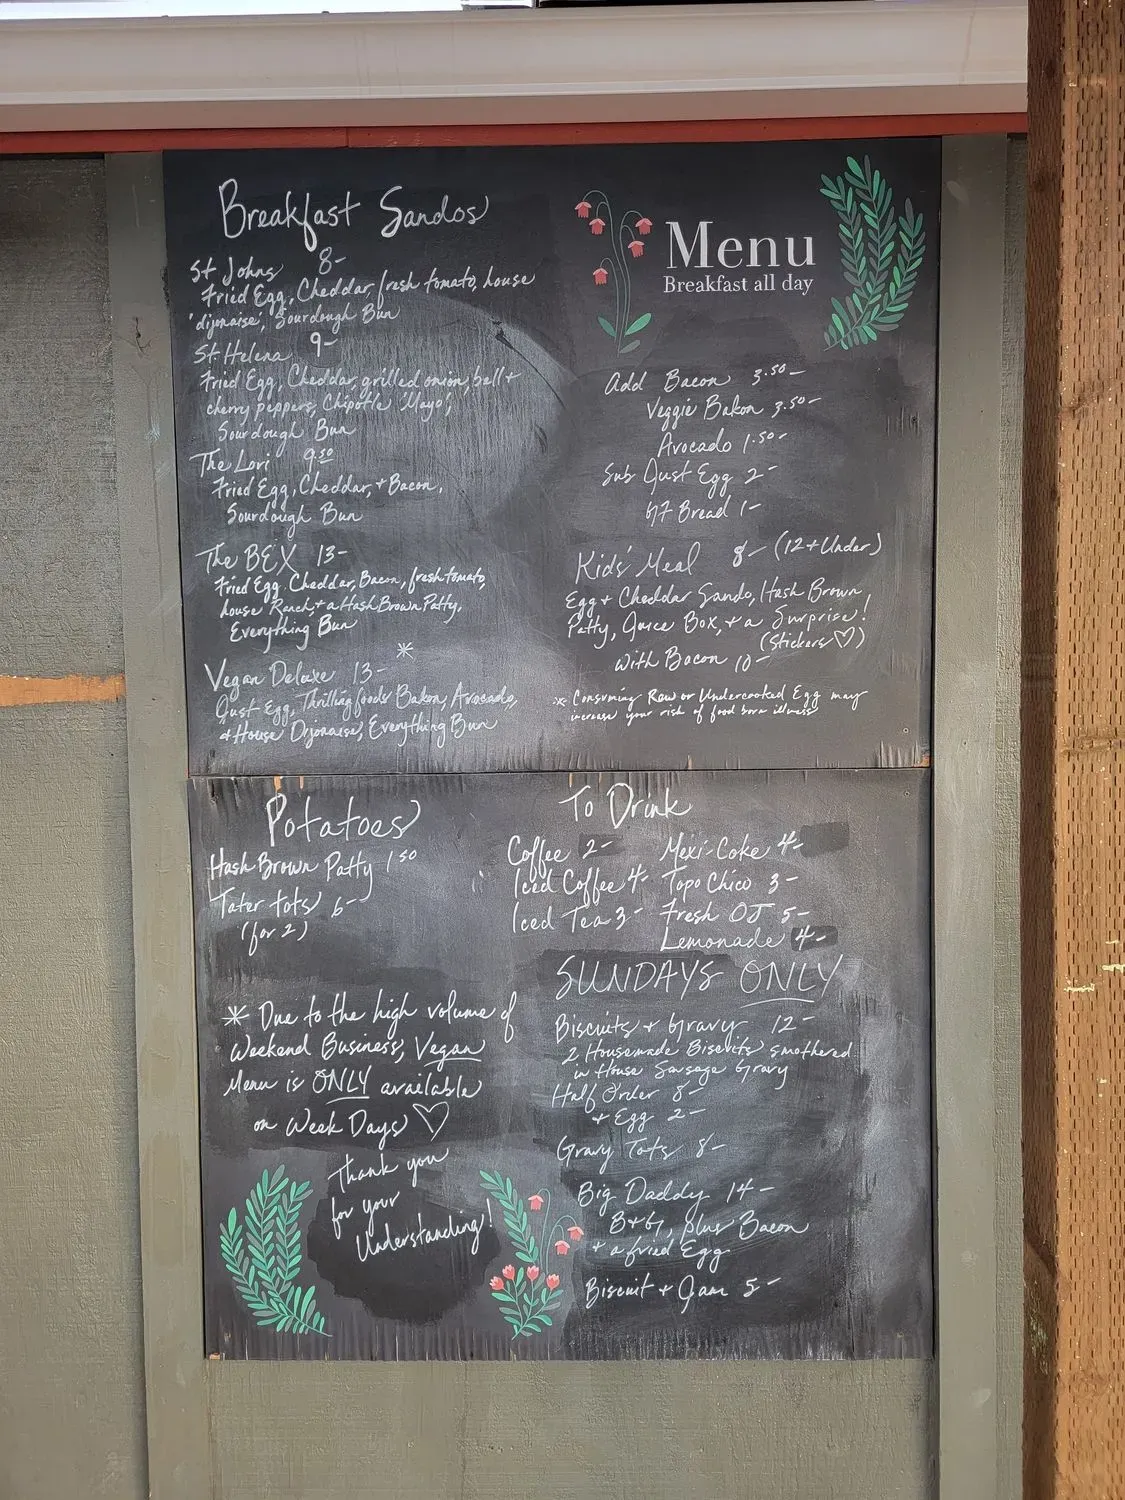 Breakfast Sandos
St Johns 8-
Fried Egg, Cheddar, fresh tomato, house
'dijonaise', Sourdough Bun
St. Helena 9-
Fried Egg, Cheddar, grilled onion, bell +
cherry peppers, Chipotle 'Mayo',
Sourdough Bun
The Lori 9.50
Fried Egg, Cheddar, + Bacon,
Sourdough Bun
The BEX 13-
Fried Egg, Cheddar, Bacon, fresh tomato,
house Ranch, + a Hash Brown Patty,
Everything Bun
*
Vegan Deluxe 13-
Just Egg, Thrilling foods Bakon, Avocado,
+ House Dijonaise, Everything Bun
Menu
Breakfast all day
Add Bacon 3.50-
Veggie Bakon 3.50-
Avocado 1.50-
Sub Just Egg 2-
GF Bread 1-
Kids' Meal 8- (12 + Under)
Egg + Cheddar Sando, Hash Brown
Patty, Juice Box, + a Surprise!
(Stickers ♡)
With Bacon 10-
* Consuming Raw or Undercooked Egg may
increase your risk of food born illness
Potatoes
Hash Brown Patty 1 50
Tater tots 6-
(for 2)
* Due to the high volume of
Weekend Business, Vegan
Menu is ONLY available
on Week Days ♡
Thank you
for your
Understanding!
To Drink
Coffee 2- Mexi-Coke 4-
Iced Coffee 4- Topo Chico 3-
Iced Tea 3- Fresh OJ 5-
Lemonade 4-
SUNDAYS ONLY
Biscuits + Gravy 12-
2 Housemade Biscuits smothered
in House Sausage Gravy
Half Order 8-
+ Egg 2-
Gravy Tots 8-
Big Daddy 14-
B+G, plus Bacon
+ a fried Egg
Biscuit + Jam 5-